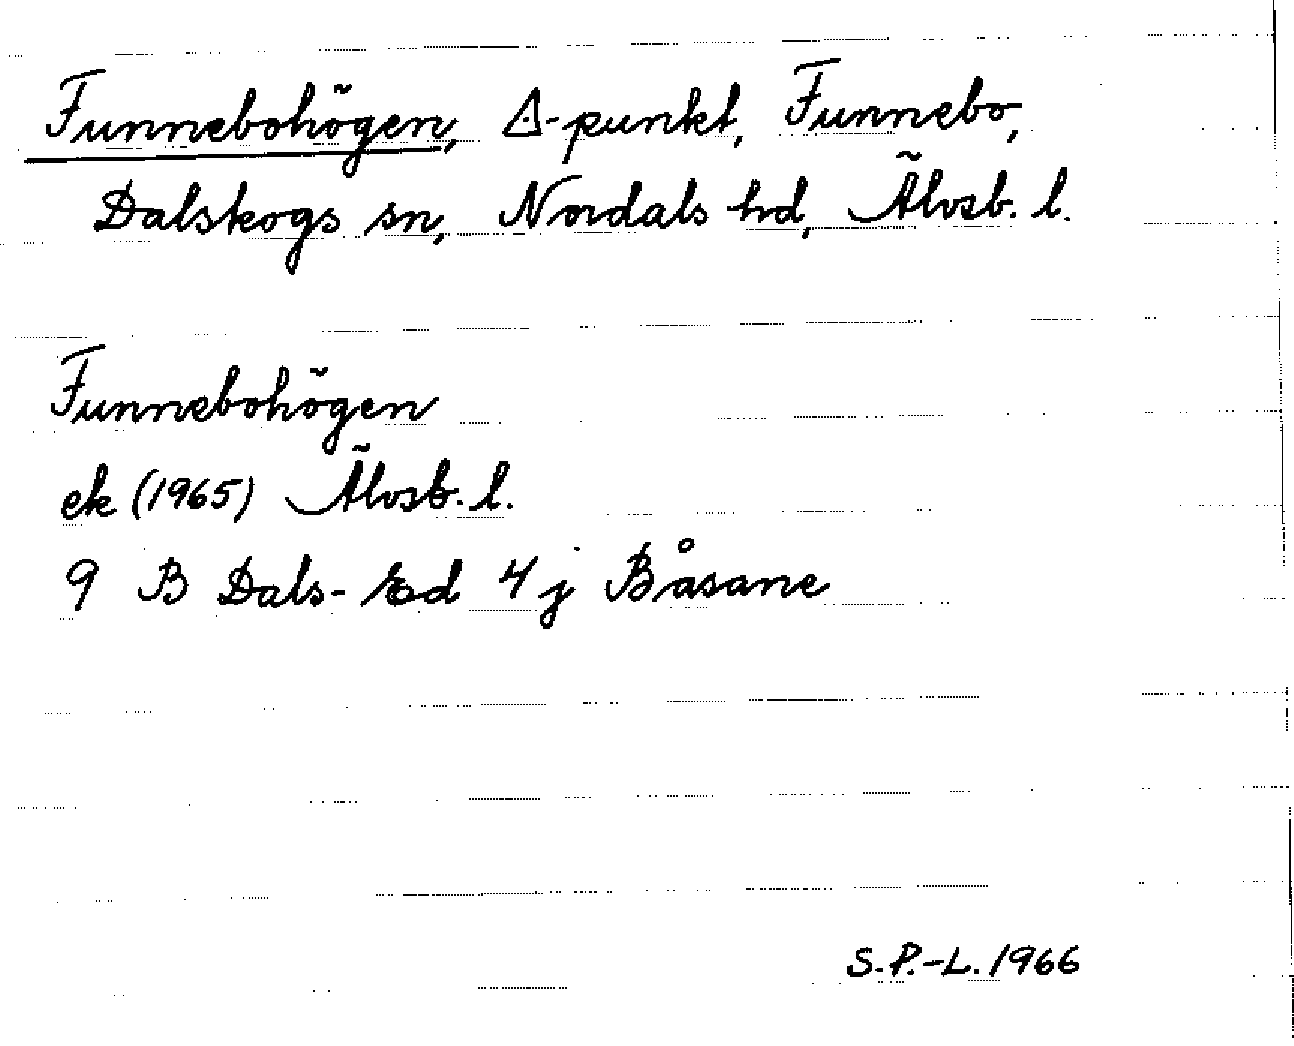 Funnebohögen, Δ-punkt, Funnebo,
Dalskogs sn, Nordals hd, Älvsb. l.
Funnebohögen
ek (1965) Älvsb. l.
9 B Dals-Ed 4 j Båsane
S.P.-L. 1966